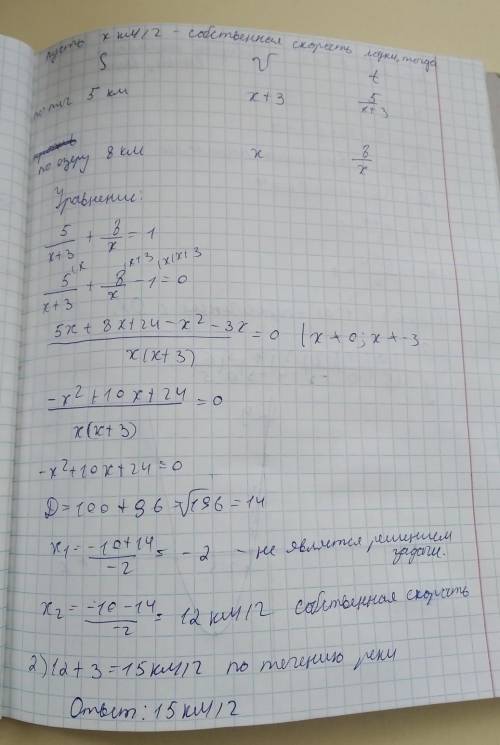 пусть x км/г - собственная скорость лодки, тогда
S V t
по теч 5 км x+3 5/(x+3)
по озеру 8 км x 8/x
Уравнение:
5/(x+3) + 8/x = 1
5/(x+3) + 8/x - 1 = 0 (x (x+3 (x(x+3
(5x + 8x + 24 - x² - 3x)/(x(x+3)) = 0 | x ≠ 0; x ≠ -3
(-x² + 10x + 24)/(x(x+3)) = 0
-x² + 10x + 24 = 0
D = 100 + 96 = √196 = 14
x₁ = (-10+14)/(-2) = -2 - не является решением
задачи.
x₂ = (-10-14)/(-2) = 12 км/г собственная скорость
2) 12 + 3 = 15 км/г по течению реки
Ответ: 15 км/г